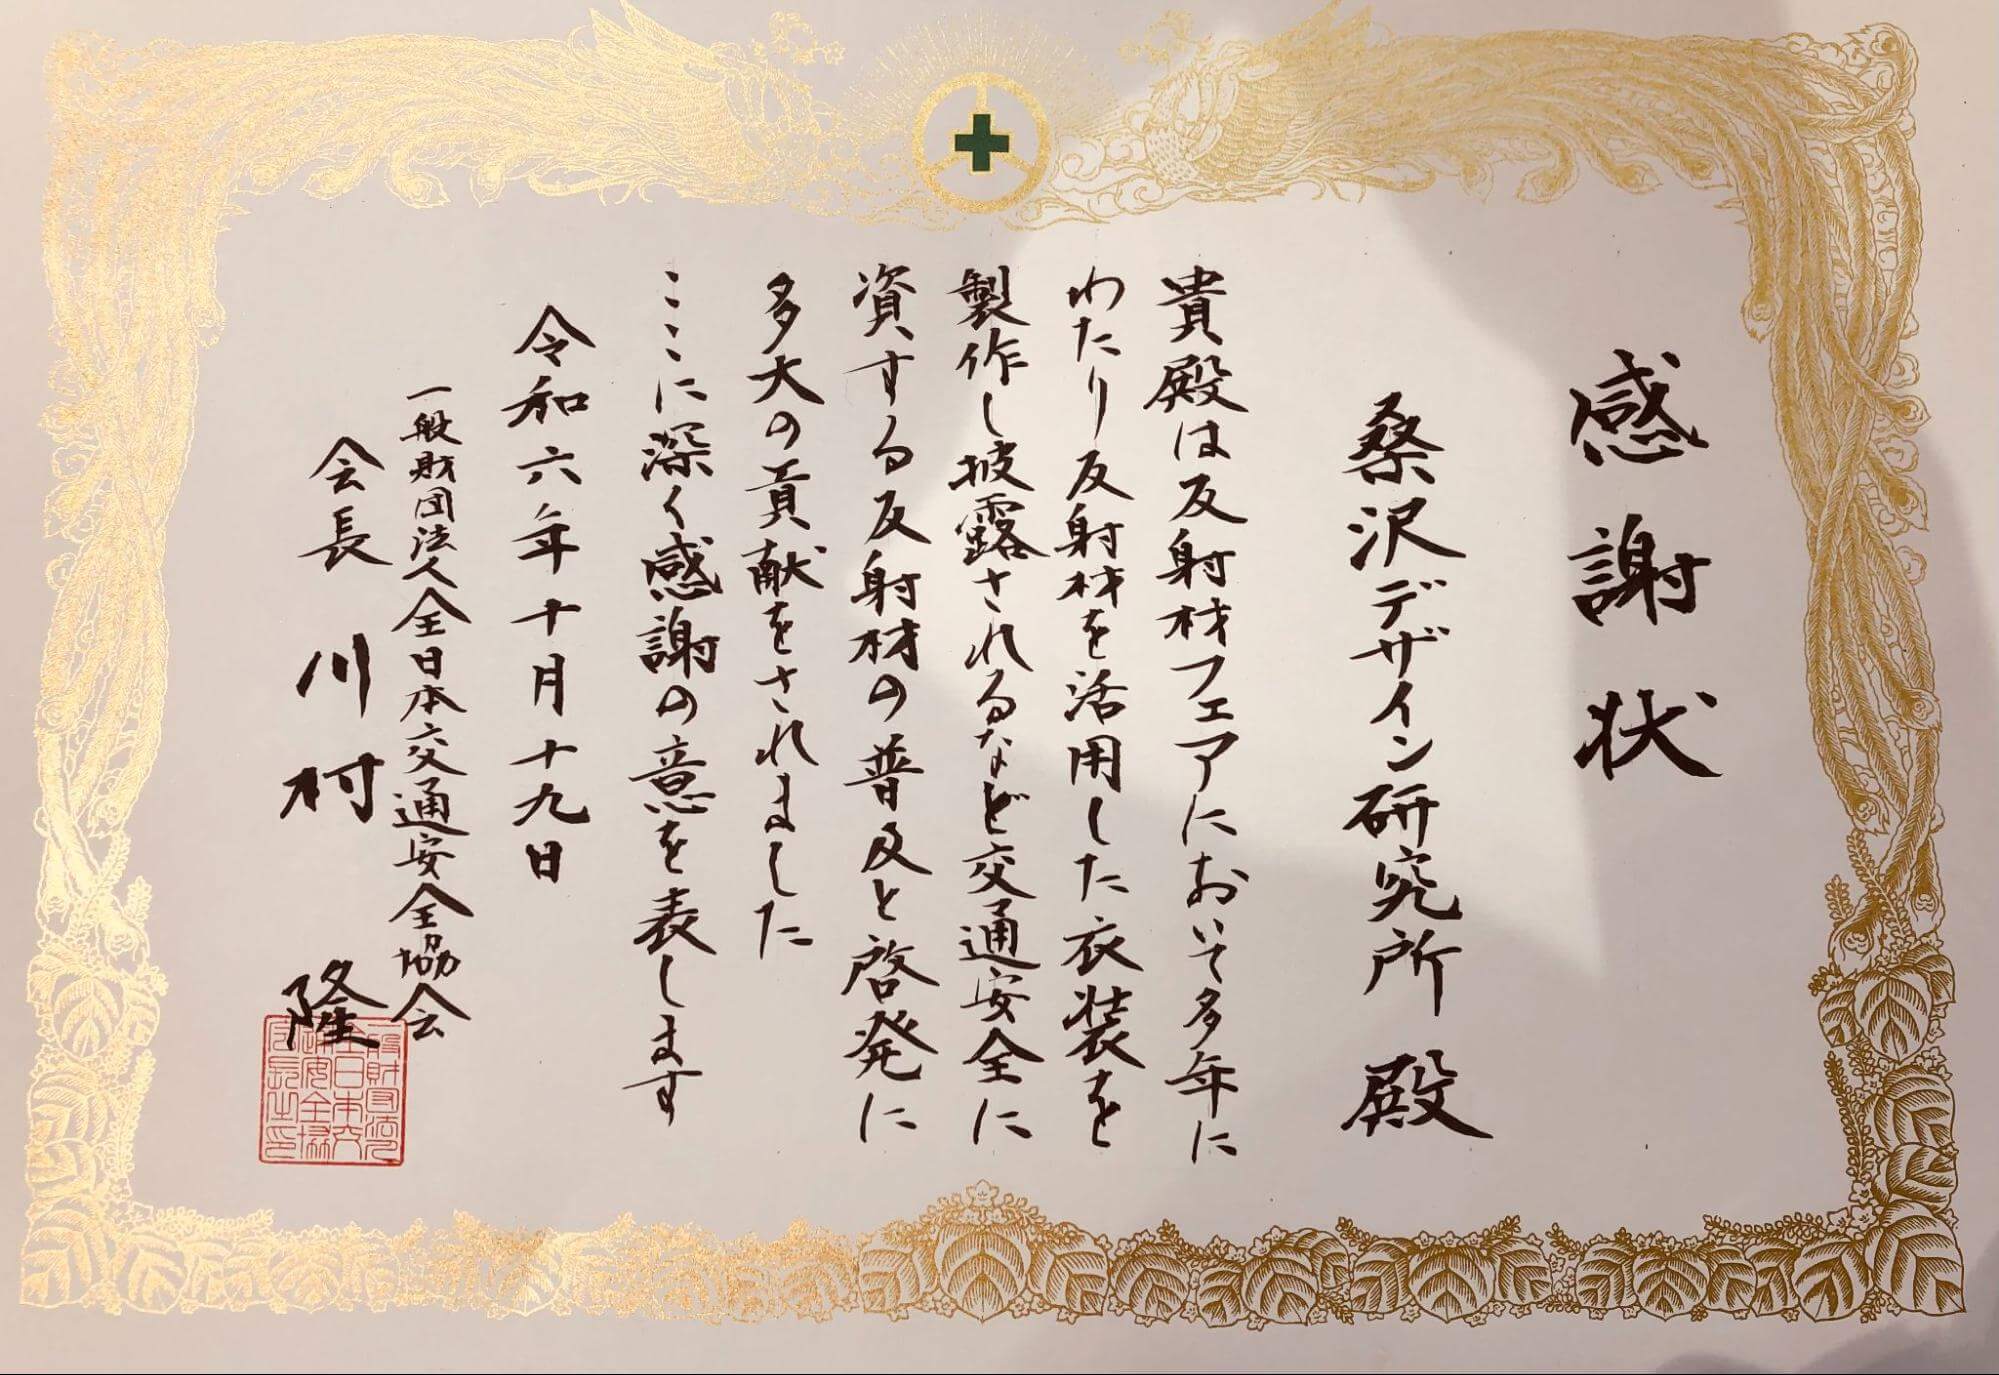 感謝状
桑沢デザイン研究所 殿
貴殿は反射材フェアにおいて多年に
わたり反射材を活用した衣装を
製作し披露されるなど交通安全に
資する反射材の普及と啓発に
多大の貢献をされました
ここに深く感謝の意を表します
令和六年十月十九日
一般財団法人全日本交通安全協会
会長 川村 隆
一般財団法人
全日本交
通安全協
会長之印